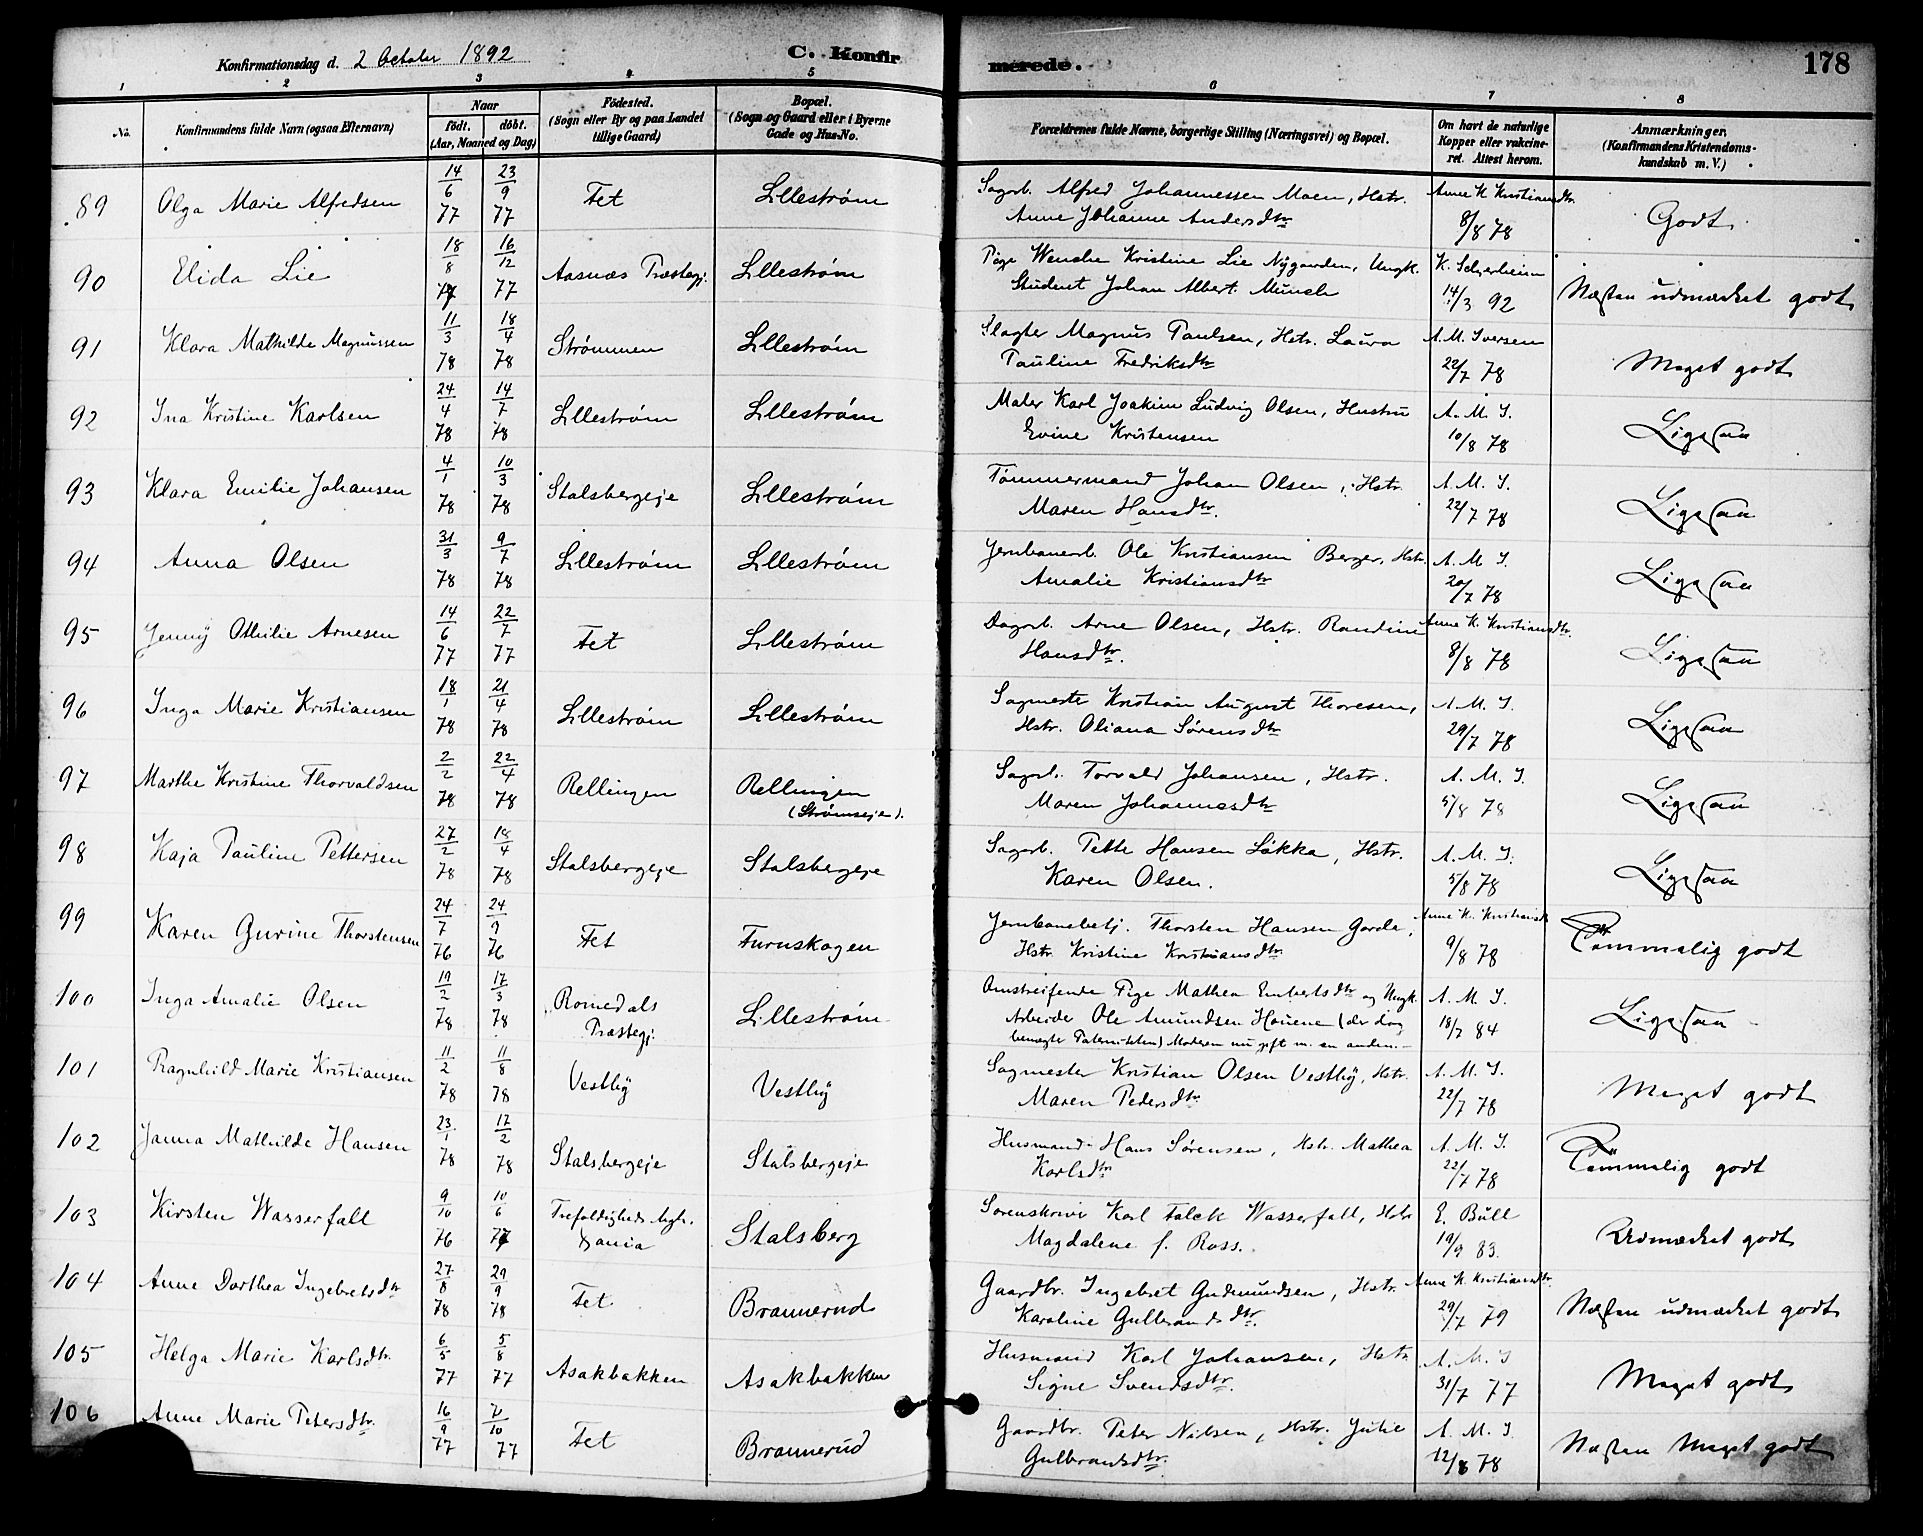 Konfirmationsdag d. 2 October 1892
C. Konfirmerede.
178
1 2 3 4 5 6 7 8
No.
Konfirmandens fulde Navn (ogsaa Efternavn)
Naar
födt. döbt.
(Aar, Maaned og Dag)
Födested.
(Sogn eller By og paa Landet
tillige Gaard)
Bopæl.
(Sogn og Gaard eller i Byerne
Gade og Hus-No.
Forældrenes fulde Navne, borgerlige Stilling (Næringsvei) og Bopæl.
Om havt de naturlige
Kopper eller vakcine-
ret. Attest herom.
Anmærkninger.
(Konfirmandens Kristendoms-
kundskab m. V.)
89 Olga Marie Alfredsen 14/6 77 23/9 77 Fet Lillestrøm Sagarb. Alfred Johannessen Moen, Hstr. Anne K. Kristiansdtr.
Anne Johanne Andersdtr 8/8 78 Godt
90 Elida Lie 18/8 77 16/12 77 Aasnæs Præstegj. Lillestrøm Pige Wenche Kristine Lie Nygarden, Ungk.
Student Johan Albert Munch 14/3 92 Næsten udmærket godt
91 Klara Mathilde Magnussen 11/3 78 18/4 78 Strømmen Lillestrøm Slagter Magnus Paulsen, Hstr. Laura A. M. Iversen
Pauline Fredriksdtr 22/7 78 Meget godt
92 Ina Kristine Karlsen 24/4 78 14/7 78 Lillestrøm Lillestrøm Maler Karl Joakim Ludvig Olsen, Hustru A. M. I.
Evine Kristensen 10/8 78 Ligesaa
93 Klara Emilie Johansen 4/1 78 10/3 78 Stalsbergeje Lillestrøm Tømmermand Johan Olsen, Hstr. A. M. I.
Maren Hansdtr. 22/7 78 Ligesaa
94 Anna Olsen 31/3 78 9/7 78 Lillestrøm Lillestrøm Jernbanearb. Ole Kristiansen Berger, Hstr. A. M. I.
Amalie Kristiansdtr 20/7 78 Ligesaa
95 Jenny Othilie Arnesen 14/6 77 22/7 77 Fet Lillestrøm Dagarb. Arne Olsen, Hstr. Randine Anne K. Kristiansdtr.
Hansdtr. 8/8 78 Ligesaa
96 Inga Marie Kristiansen 18/1 78 21/4 78 Lillestrøm Lillestrøm Sagmester Kristian August Thoresen, A. M. I.
Hstr. Oliana Sørensdtr 29/7 78 Ligesaa
97 Marthe Kristine Thorvaldsen 2/2 78 22/4 78 Rellingen Rellingen Sagarb. Torvald Johansen, Hstr. A. M. I.
(Strømseje). Maren Johannesdtr 5/8 78 Ligesaa
98 Kaja Pauline Pettersen 27/2 78 18/4 78 Stalsbergeje Stalsbergeje Sagarb. Petter Hansen Løkka, Hstr. A. M. I.
Karen Olsen. 5/8 78 Ligesaa
99 Karen Gurine Thorstensen 24/7 76 24/9 76 Fet Furuskogen Jernbanebetj. Thorsten Hansen Garde, Anne K. Kristiansdtr
Hstr. Kristine Kristiansdtr. 9/8 78 Temmelig godt
100 Inga Amalie Olsen 19/2 78 17/3 78 Romedals Præstegj. Lillestrøm Omstreifende Pige Mathea Embertsdtr og Ungk. A. M. I.
Arbeider Ole Amundsen Hauene (der dog 18/7 84 Ligesaa
benegte Paterniteten) Moderen nu gift m. en anden.
101 Ragnhild Marie Kristiansen 11/2 78 11/8 78 Vestby Vestby Sagmester Kristian Olsen Vestby, Hstr. A. M. I.
Maren Pedersdtr 22/7 78 Meget godt
102 Janna Mathilde Hansen 23/1 78 17/2 78 Stalsbergeje Stalsbergeje Husmand Hans Sørensen, Hstr. Mathea A. M. I.
Karlsdtr 22/7 78 Temmelig godt
103 Kirsten Wasserfall 9/10 76 10/6 77 Trefoldigheds Stalsberg Sorenskriver Karl Falck Wasserfall, Hstr E. Bull
Magdalene f. Ross. 19/9 83. Udmærket godt
104 Anne Dorthea Ingebretsdtr 27/8 78 29/9 78 Fet Brannerud Gaardbr. Ingebret Gudmundsen, Hstr. Anne K. Kristiansdtr.
Karoline Gulbrandsdtr. 29/7 79 Næsten udmærket godt
105 Helga Marie Karlsdtr. 6/5 77 5/8 77 Asakbakken Asakbakken Husmand Karl Johansen, Hstr. A. M. I
Signe Svendsdtr. 31/7 77 Meget godt
106 Anne Marie Petersdtr. 16/9 77 7/10 77 Fet Brannerud Gaardbr. Peter Nilsen, Hstr. Julie A. M. I
Gulbrandsdtr. 12/8 78 Næsten Meget godt